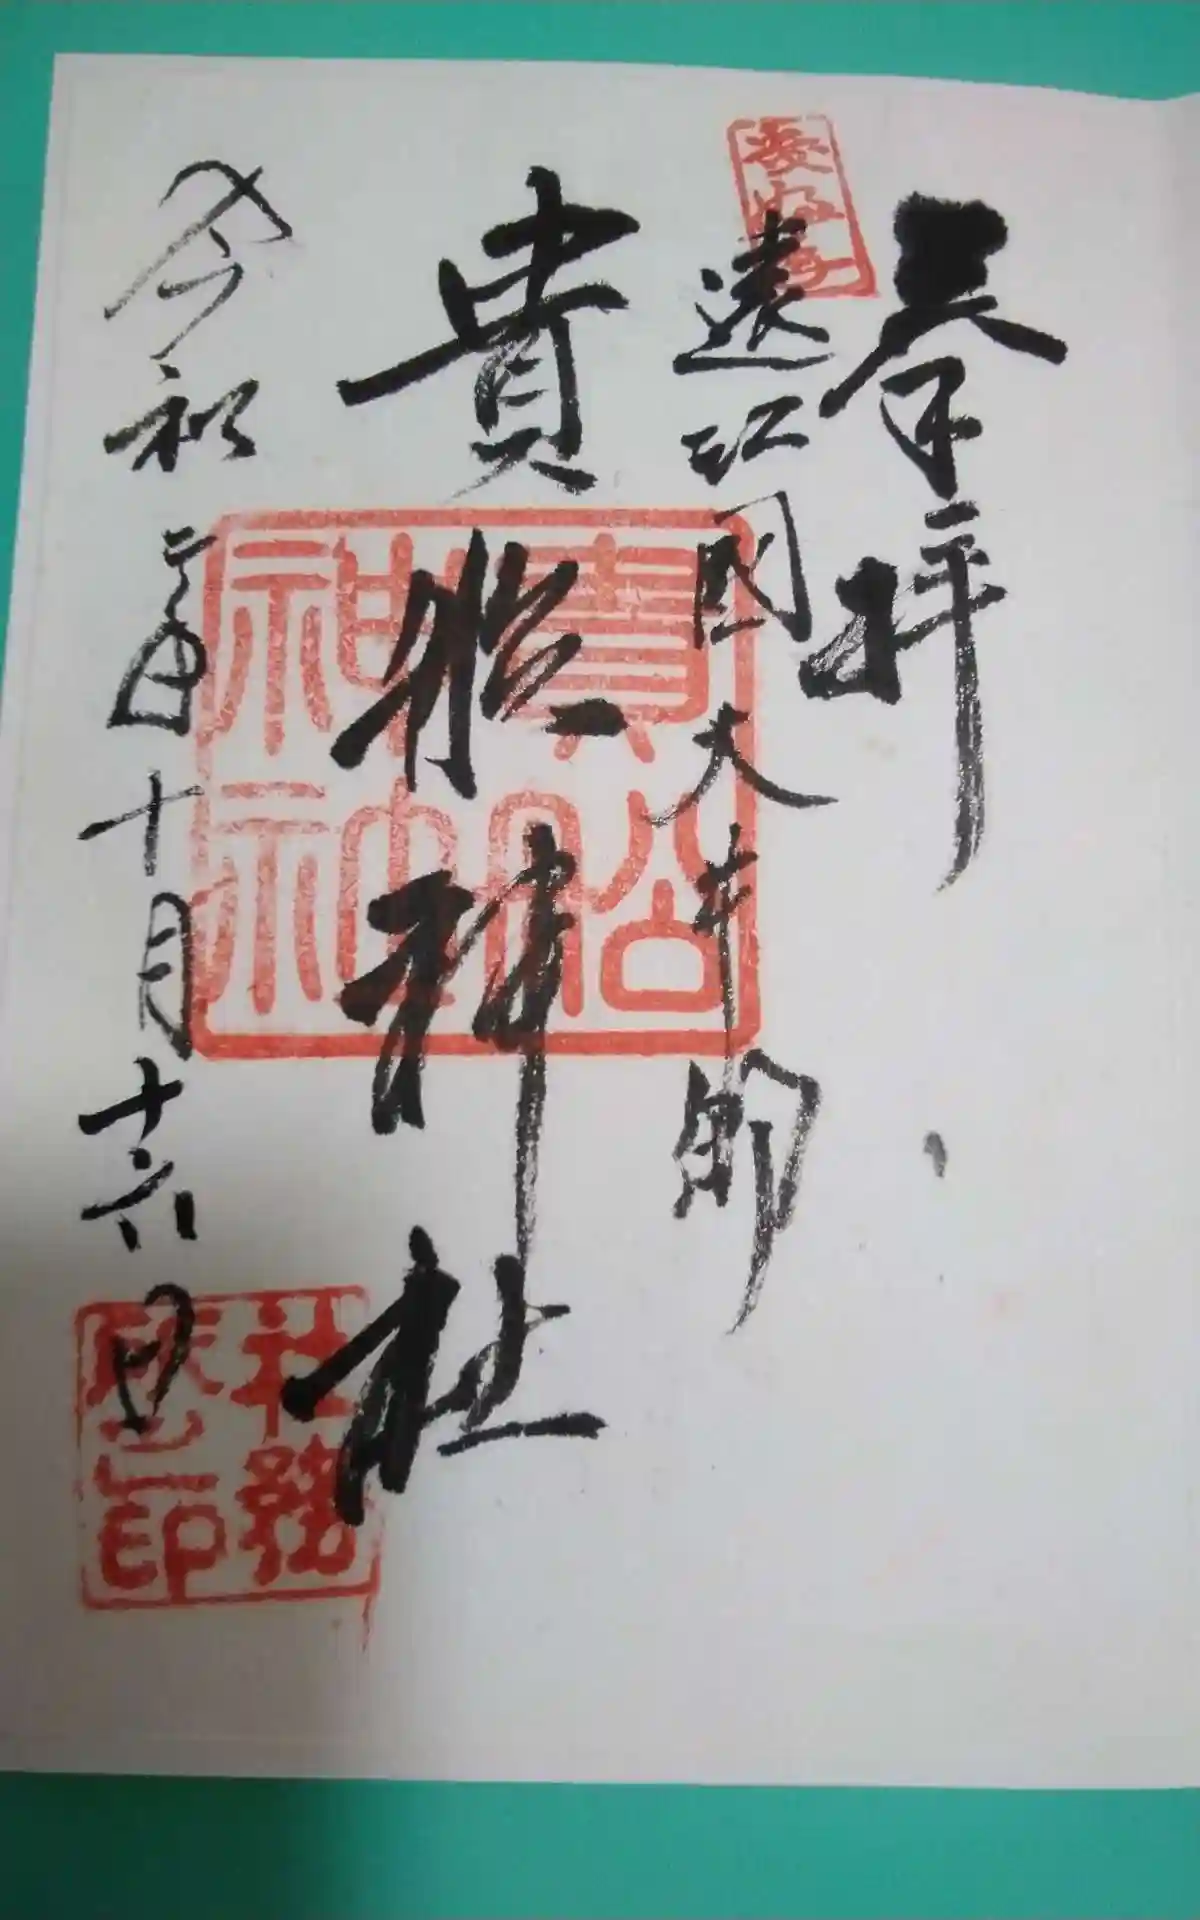 奉拝
遠江國大平郷
貴船神社
貴船
神社
令和二年十月十六日
社務
印